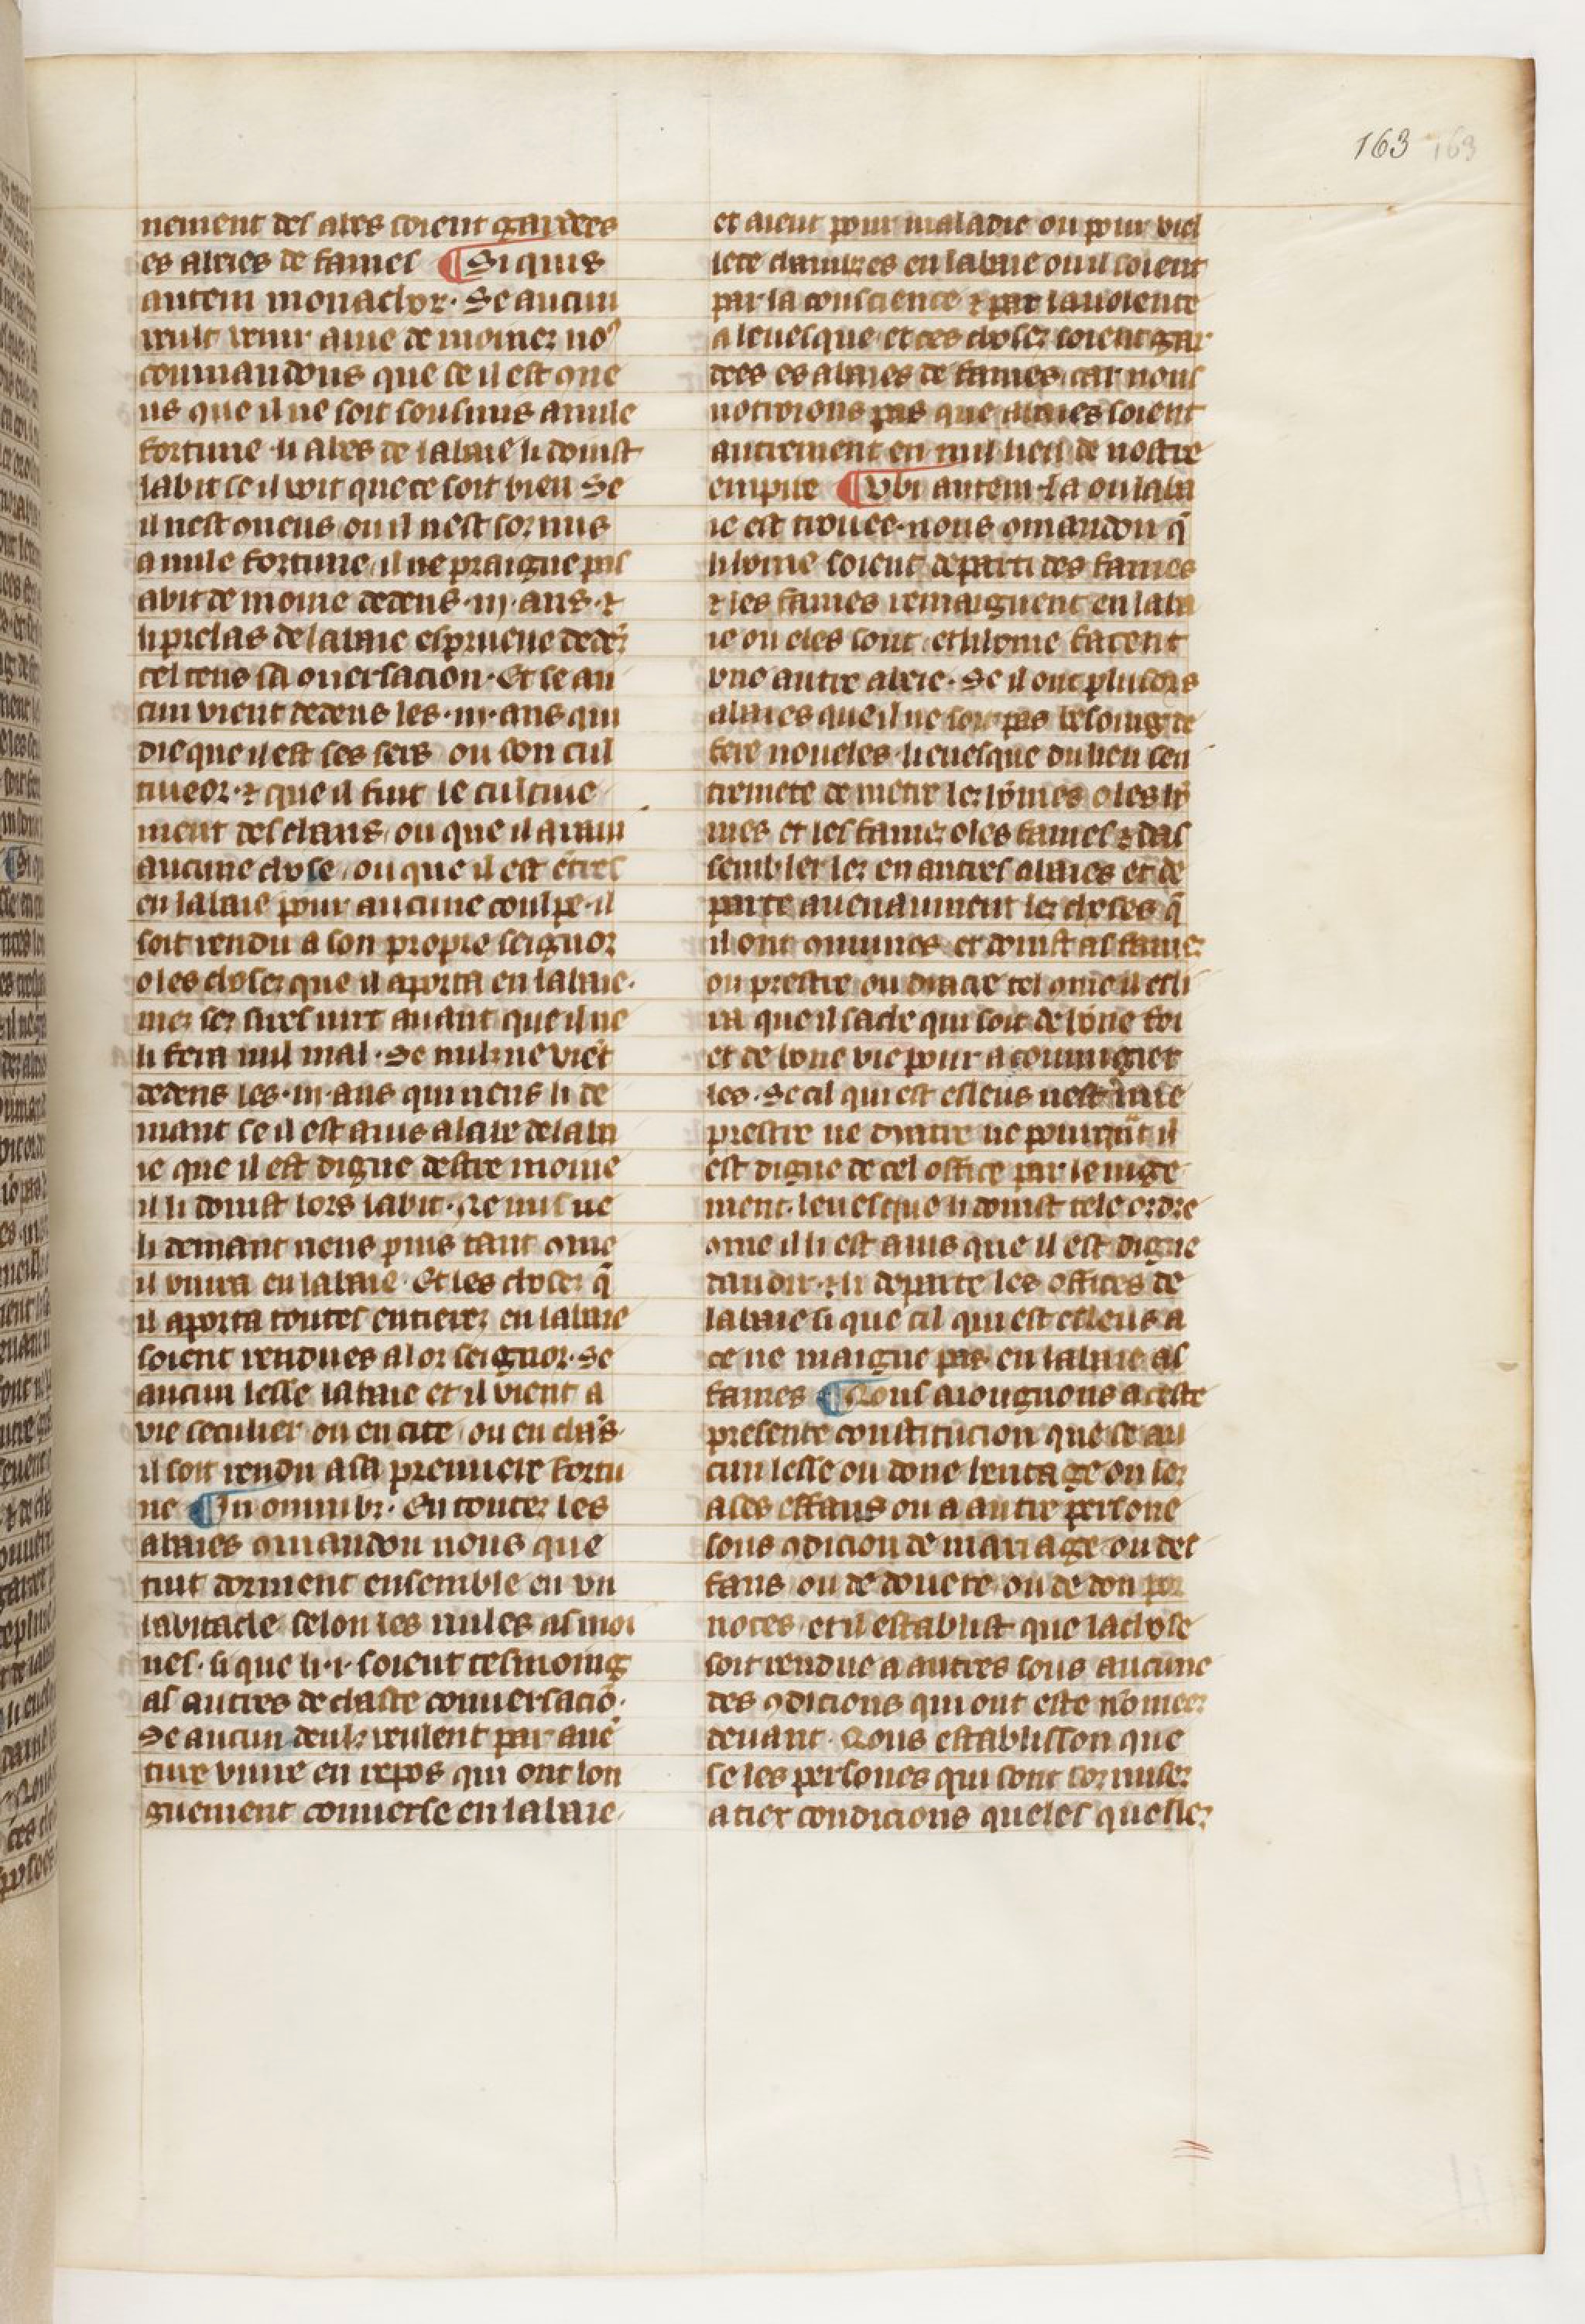 163 163
nement des abes soient gardees
es abeies de fames ¶ Si quis
autem monachor. Se aucun
veult venir a vie de moine; no9
commandons que se il est que
us que il ne soit sousmis a nule
fortune. li abes de labaie li doinst
labit se il voit que ce soit bien Se
il nest queus ou il nest sozmis
a nule fortune, il ne praigne pas
abit de moine dedens .iii. ans. ⁊
li prelas de labaie esprueue dedēs
cel tens sa ꝯuersacion. Et se au
cun vient dedens les .iii. ans qui
die que il est ses sers ou son cul
tiueor. ⁊ que il fuit le cultiue
ment des chans, ou que il a rauı
aucune chose, ou que il est ētres
en labaie pour aucune coulpe. il
soit rendu a son propre seignor
o les choses que il aporta en labaie.
mes ses sires iurt auant que il ne
li fera nul mal. Se nulz ne viēt
dedens les .iii. ans qui riens li de
mant se il est auis a labe de laba
ie que il est digne destre moine
il li doinst lors labit. Ne nus ne
li demant riens puis tant ꝯme
il viura en labaie. Et les choses q̄
il aporta toutes entieres en labaie
soient rendues a lor seignor. Se
aucun lesse labaie et il vient a
vie seculier ou en cite, ou en chās.
il soit rendu a sa premiere fortu
ne ¶ In omnibz. En toutes les
abaies ꝯmandon nous que
tuit dorment ensemble en vn
habitacle selon les riules as moi
nes. si que li .i. soient tesmoing
as autres de chaste conuersaciō.
Se aucun deulz veulent par auē
ture viure en repos qui ont lon
guement conuerse en labaie.
et aient pour maladie ou pour viel
lece chambres en labaie ou il soient
par la conscience ⁊ par lauolente
a leuesque. et ces choses soient gar
dees es abaies de fames. car nous
notroions pas que abaies soient
autrement en nul lieu de nostre
empire ¶ Vbi autem. La ou laba
ie est trouee. nous ꝯmandon q̄
li home soient departi des fames
⁊ les fames remaignent en laba
ie ou eles sont. et li home facent
vne autre abeie. Se il ont plusors
abaies que il ne soit pas besoing de
fere noueles. li euesque du lieu sen
tremete de metre les hōmes o les hō
mes et les fames o les fames ⁊ das
sembler les en autres abaies et de
parte auenaument les choses q̄
il ont ꝯmunes. et doinst as fames
ou prestre ou diacre tel ꝯme il esli
ra que il sache qui soit de bone foi
et de bone vie pour acommigier
les. Se cil qui est esleus nest mie
prestre ne diacre ne pourqāt il
est digne de cel office par le iuge
ment. leuesque li doinst tele ordre
ꝯme il li est auis que il est digne
dauoir. ⁊ li departe les offices de
labaie si que cil qui est esleus a
ce ne maigne pas en labaie as
fames ¶ Nous aiougnons a ceste
presente constitucion que se au
cun lesse ou done heritage ou les
a ses effans ou a autre persone
sous ꝯdicion de mariage ou def
fans ou de douere ou de don por
noces. et il establist que la chose
soit rendue a autres sous aucune
des ꝯdicions qui ont este nōmees
deuant. Nous establisson que
se les persones qui sont sozmises
a tiex condicions queles quelles